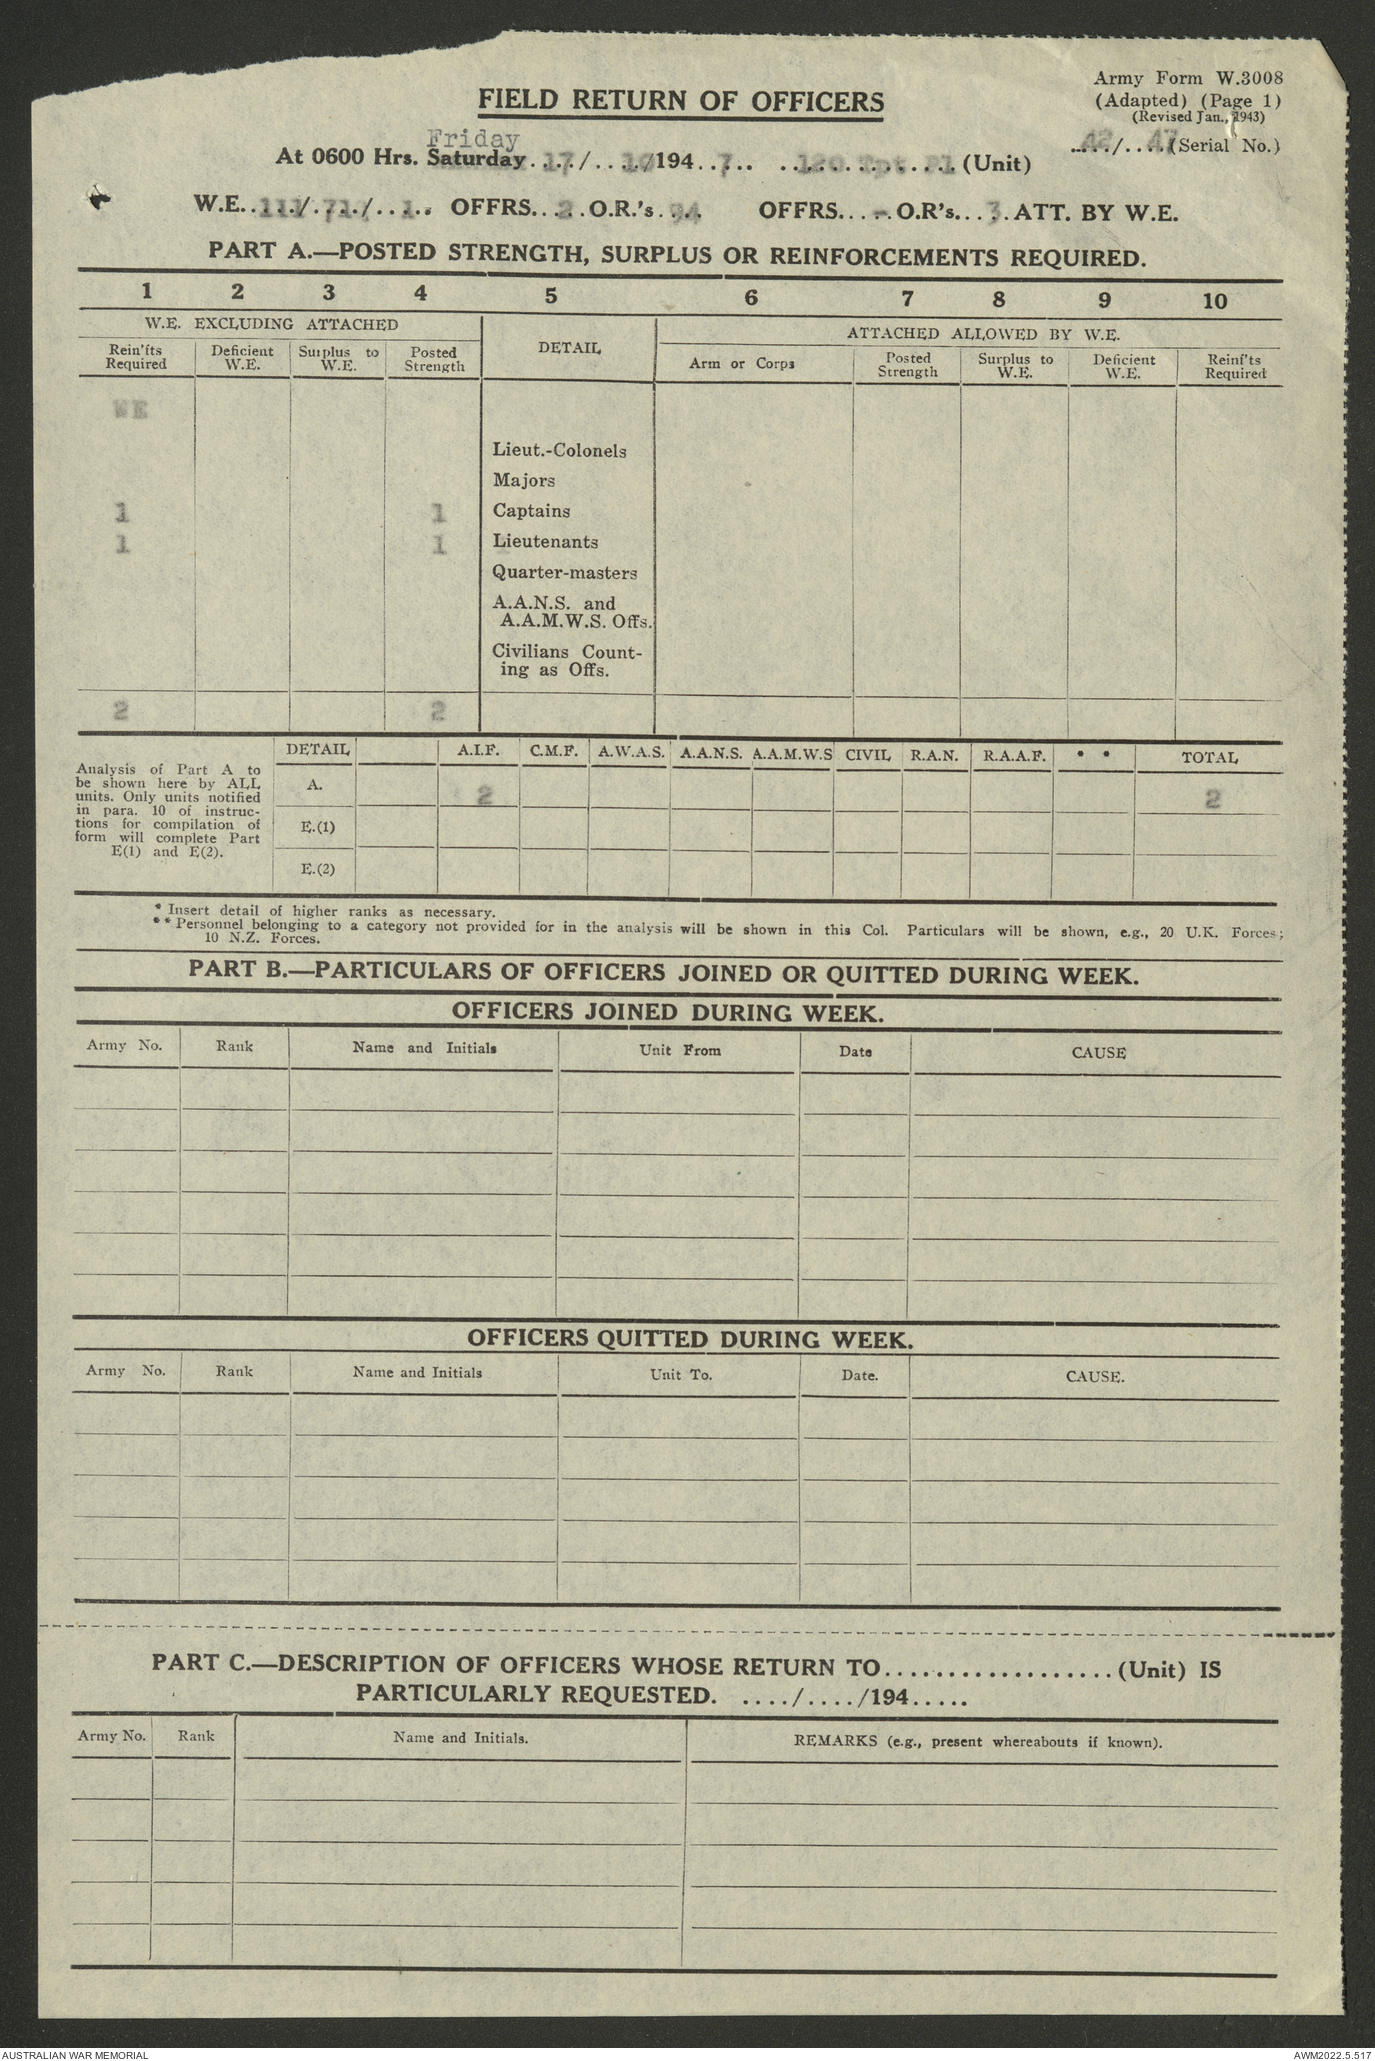 Army Form W.3008
(Adapted) (Page 1)
(Revised Jan., 1943)
FIELD RETURN OF OFFICERS
..42./..47(Serial No.)
Friday
At 0600 Hrs. Saturday..17/..10/194..7.. ..120 Tpt Pl.(Unit)
W.E..111/.71./..1.. OFFRS...2.O.R.'s.94. OFFRS...-.O.R's...3.ATT. BY W.E.
PART A.—POSTED STRENGTH, SURPLUS OR REINFORCEMENTS REQUIRED.
1 2 3 4 5 6 7 8 9 10
W.E. EXCLUDING ATTACHED DETAIL ATTACHED ALLOWED BY W.E.
Rein'fts Required Deficient W.E. Surplus to W.E. Posted Strength Arm or Corps Posted Strength Surplus to W.E. Deficient W.E. Reinf'ts Required
WE
Lieut.-Colonels
Majors
1 1 Captains
1 1 Lieutenants
Quarter-masters
A.A.N.S. and
A.A.M.W.S. Offs.
Civilians Count-
ing as Offs.
2 2
DETAIL A.I.F. C.M.F. A.W.A.S. A.A.N.S. A.A.M.W.S CIVIL R.A.N. R.A.A.F. * * TOTAL
Analysis of Part A to
be shown here by ALL
units. Only units notified
in para. 10 of instruc-
tions for compilation of
form will complete Part
E(1) and E(2).
A. 2 2
E.(1)
E.(2)
* Insert detail of higher ranks as necessary.
** Personnel belonging to a category not provided for in the analysis will be shown in this Col. Particulars will be shown, e.g., 20 U.K. Forces;
10 N.Z. Forces.
PART B.—PARTICULARS OF OFFICERS JOINED OR QUITTED DURING WEEK.
OFFICERS JOINED DURING WEEK.
Army No. Rank Name and Initials Unit From Date CAUSE
OFFICERS QUITTED DURING WEEK.
Army No. Rank Name and Initials Unit To. Date. CAUSE.
PART C.—DESCRIPTION OF OFFICERS WHOSE RETURN TO...................(Unit) IS
PARTICULARLY REQUESTED. ..../..../194.....
Army No. Rank Name and Initials. REMARKS (e.g., present whereabouts if known).
AUSTRALIAN WAR MEMORIAL AWM2022.5.517